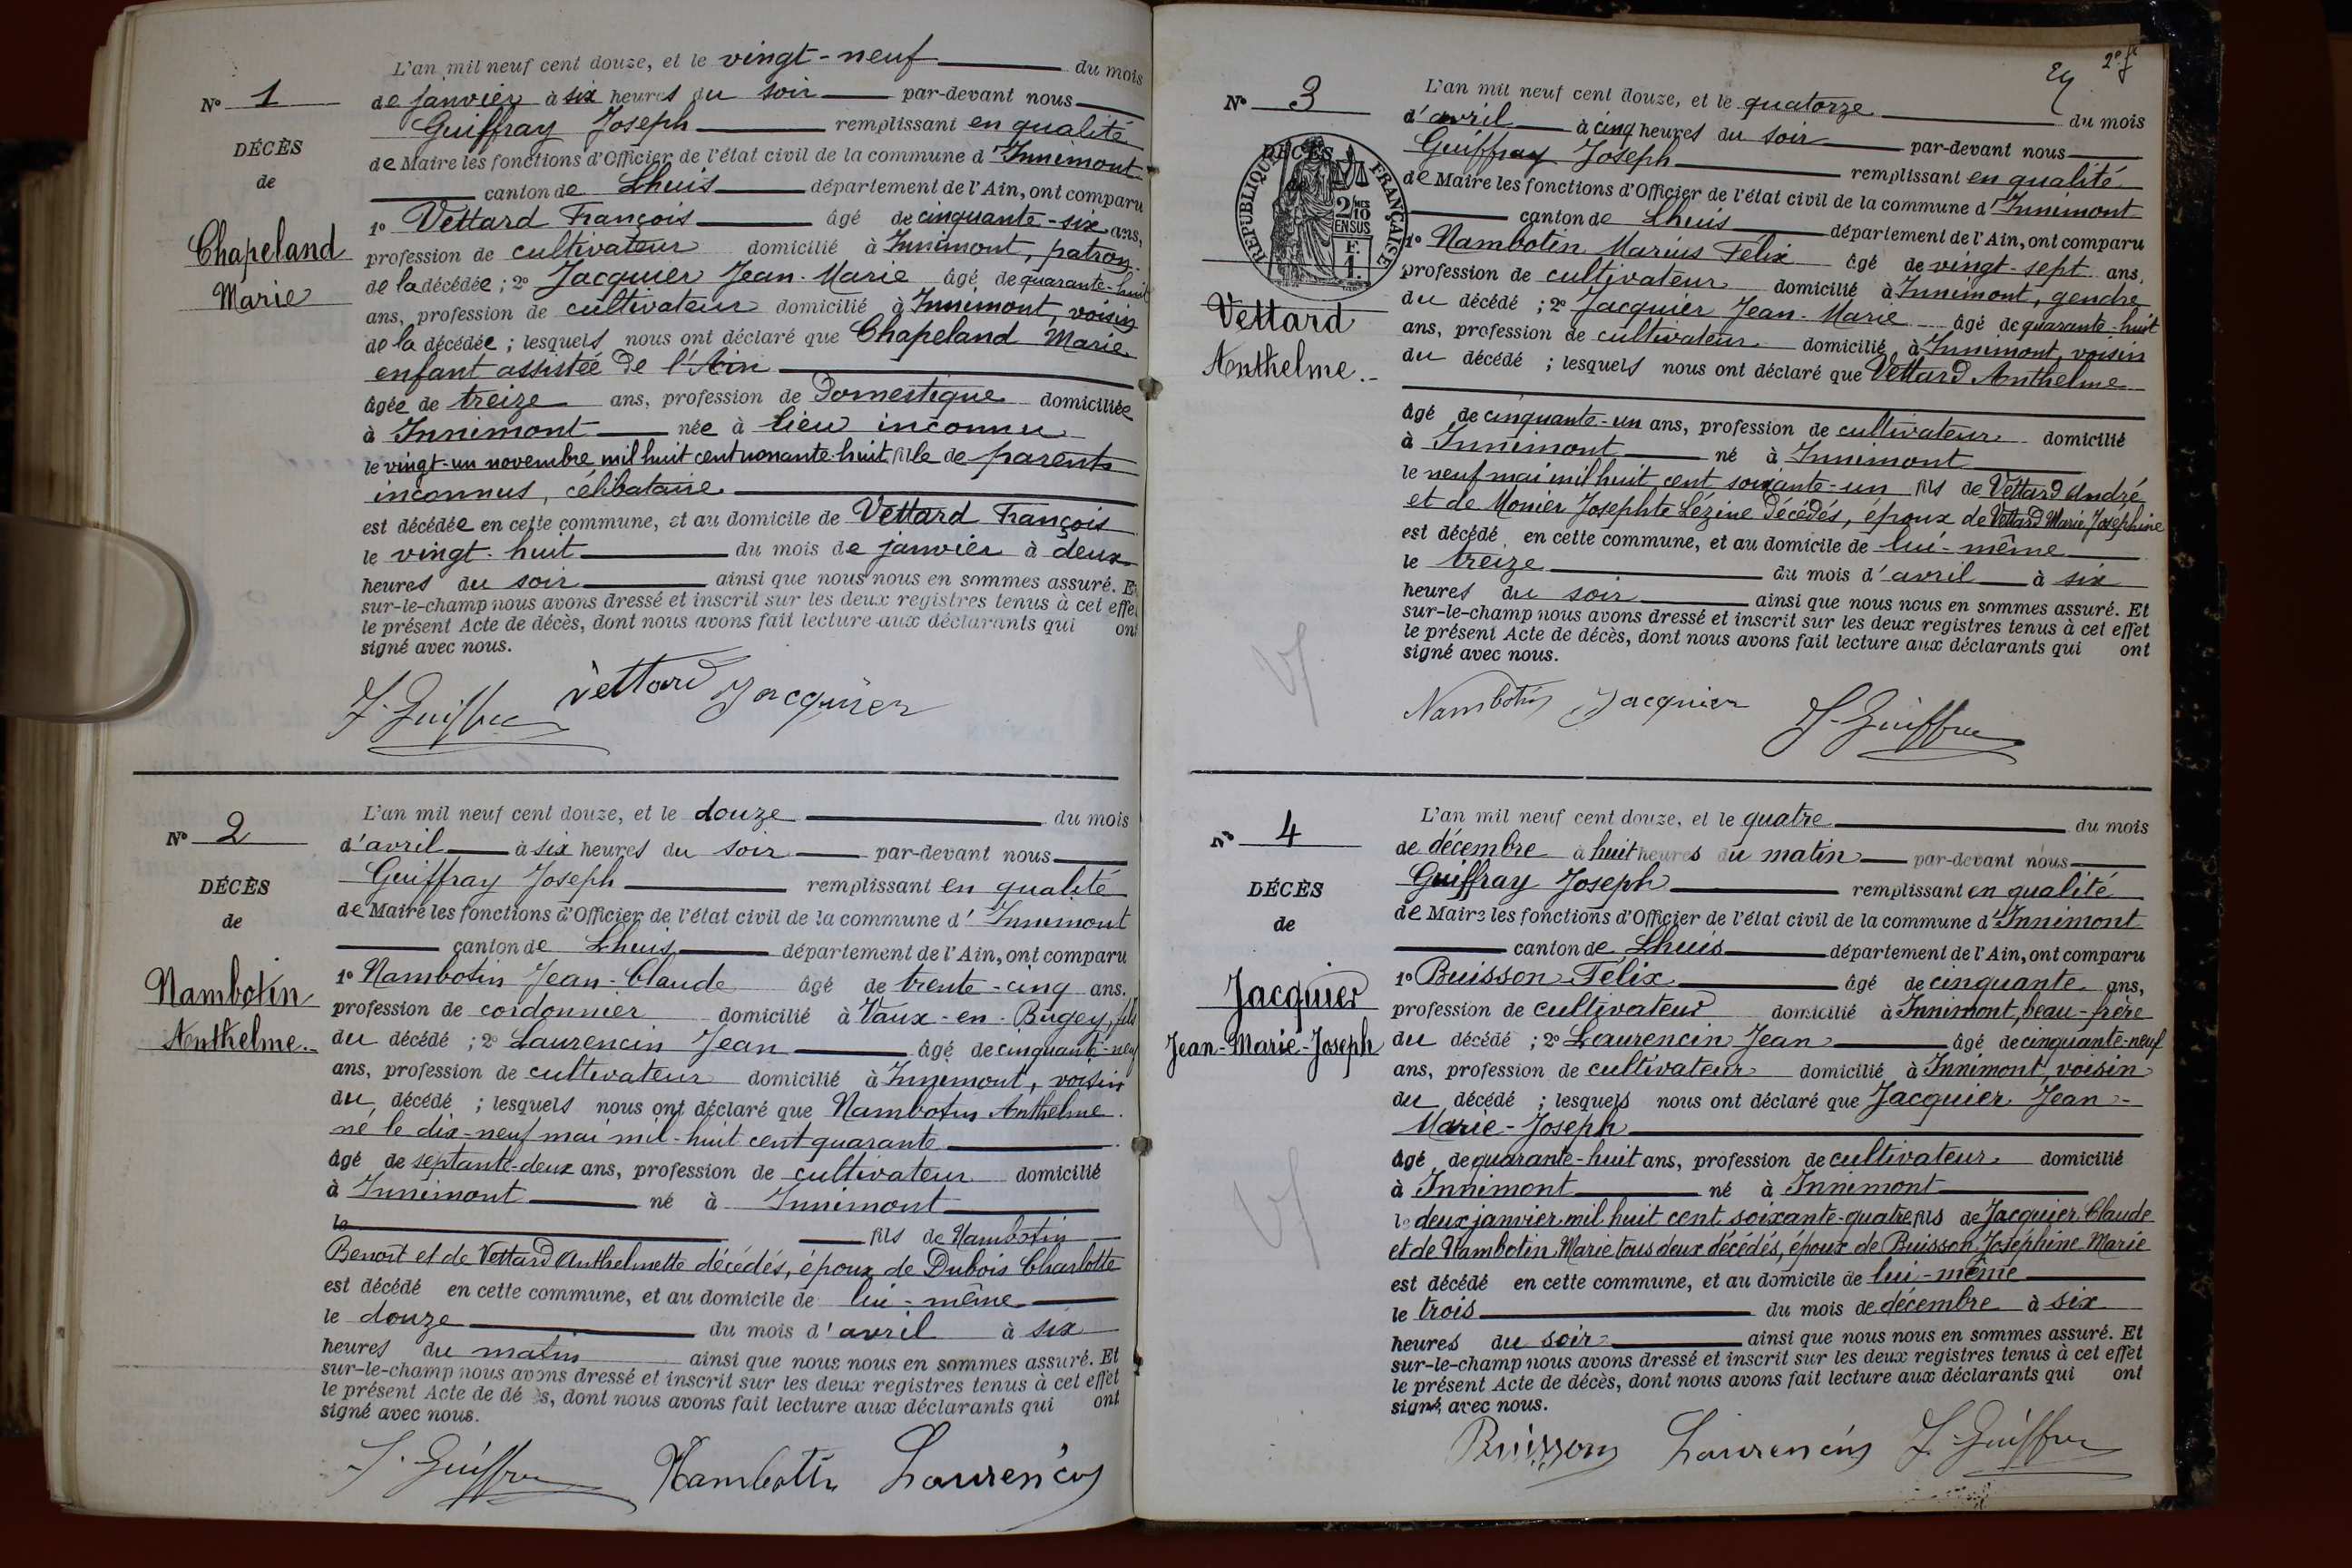 L'an mil neuf cent douze, et le vingt-neuf du mois
N° 1
de janvier à six heures du soir par-devant nous
Guiffray Joseph remplissant en qualité
DÉCÈS
de Maire les fonctions d'Officier de l'état civil de la commune d'Innimont
de
canton de Lhuis département de l'Ain, ont comparu
1° Vettard François âgé de cinquante-six ans,
Chapeland
profession de cultivateur domicilié à Innimont, patron
Marie
de la décédée ; 2° Jacquier Jean-Marie âgé de quarante-huit
ans, profession de cultivateur domicilié à Innimont, voisin
de la décédée ; lesquels nous ont déclaré que Chapeland Marie
enfant assistée de l'Ain
âgée de treize ans, profession de Domestique domiciliée
à Innimont née à lieu inconnu
le vingt-un novembre mil huit cent nonante-huit fille de parents
inconnus, célibataire
est décédée en cette commune, et au domicile de Vettard François
le vingt-huit du mois de janvier à deux
heures du soir ainsi que nous nous en sommes assuré. Et
sur-le-champ nous avons dressé et inscrit sur les deux registres tenus à cet effet
le présent Acte de décès, dont nous avons fait lecture aux déclarants qui ont
signé avec nous.
J. Guiffray Vettard Jacquier
L'an mil neuf cent douze, et le douze du mois
N° 2
d'avril à six heures du soir par-devant nous
Guiffray Joseph remplissant en qualité
DÉCÈS
de Maire les fonctions d'Officier de l'état civil de la commune d'Innimont
de
canton de Lhuis département de l'Ain, ont comparu
1° Nambotin Jean-Claude âgé de trente-cinq ans.
Nambotin
profession de cordonnier domicilié à Vaux-en-Bugey, fils
Anthelme.
du décédé ; 2° Laurencin Jean âgé de cinquante-neuf
ans, profession de cultivateur domicilié à Innimont, voisin
du décédé ; lesquels nous ont déclaré que Nambotin Anthelme.
né le dix-neuf mai mil-huit cent quarante
âgé de septante-deux ans, profession de cultivateur domicilié
à Innimont né à Innimont
le fils de Nambotin
Benoît et de Vettard Anthelmette décédés, époux de Dubois Charlotte
est décédé en cette commune, et au domicile de lui-même
le douze du mois d'avril à six
heures du matin ainsi que nous nous en sommes assuré. Et
sur-le-champ nous avons dressé et inscrit sur les deux registres tenus à cet effet
le présent Acte de dé s, dont nous avons fait lecture aux déclarants qui ont
signé avec nous.
J. Guiffray Nambotin Laurencin
29 2e ft
L'an mil neuf cent douze, et le quatorze du mois
N° 3
d'avril à cinq heures du soir par-devant nous
Guiffray Joseph remplissant en qualité
DÉCÈS
de
RÉPUBLIQUE FRANÇAISE
2/10MES EN SUS
F. 1.
de Maire les fonctions d'Officier de l'état civil de la commune d'Innimont
canton de Lhuis département de l'Ain, ont comparu
1° Nambotin Marius Félix âgé de vingt-sept ans,
profession de cultivateur domicilié à Innimont, gendre
Vettard
du décédé ; 2° Jacquier Jean-Marie âgé de quarante-huit
ans, profession de cultivateur domicilié à Innimont, voisin
Anthelme.
du décédé ; lesquels nous ont déclaré que Vettard Anthelme
âgé de cinquante-un ans, profession de cultivateur domicilié
à Innimont né à Innimont
le neuf mai mil huit cent soixante-un fils de Vettard André
et de Monier Josephte Lézine décédés, époux de Vettard Marie Joséphine
est décédé en cette commune, et au domicile de lui-même
le treize du mois d'avril à six
heures du soir ainsi que nous nous en sommes assuré. Et
sur-le-champ nous avons dressé et inscrit sur les deux registres tenus à cet effet
le présent Acte de décès, dont nous avons fait lecture aux déclarants qui ont
signé avec nous.
Nambotin Jacquier J. Guiffray
L'an mil neuf cent douze, et le quatre du mois
N° 4
de décembre à huit heures du matin par-devant nous
Guiffray Joseph remplissant en qualité
DÉCÈS
de Maire les fonctions d'Officier de l'état civil de la commune d'Innimont
de
canton de Lhuis département de l'Ain, ont comparu
1° Buisson Félix âgé de cinquante ans,
Jacquier
profession de cultivateur domicilié à Innimont, beau-frère
Jean-Marie-Joseph
du décédé ; 2° Laurencin Jean âgé de cinquante-neuf
ans, profession de cultivateur domicilié à Innimont, voisin
du décédé ; lesquels nous ont déclaré que Jacquier Jean-
Marie-Joseph
âgé de quarante-huit ans, profession de cultivateur domicilié
à Innimont né à Innimont
le deux janvier mil huit cent soixante-quatre fils de Jacquier Claude
et de Nambotin Marie tous deux décédés, époux de Buisson Joséphine Marie
est décédé en cette commune, et au domicile de lui-même
le trois du mois de décembre à six
heures du soir ainsi que nous nous en sommes assuré. Et
sur-le-champ nous avons dressé et inscrit sur les deux registres tenus à cet effet
le présent Acte de décès, dont nous avons fait lecture aux déclarants qui ont
signé avec nous.
Buisson Laurencin J. Guiffray